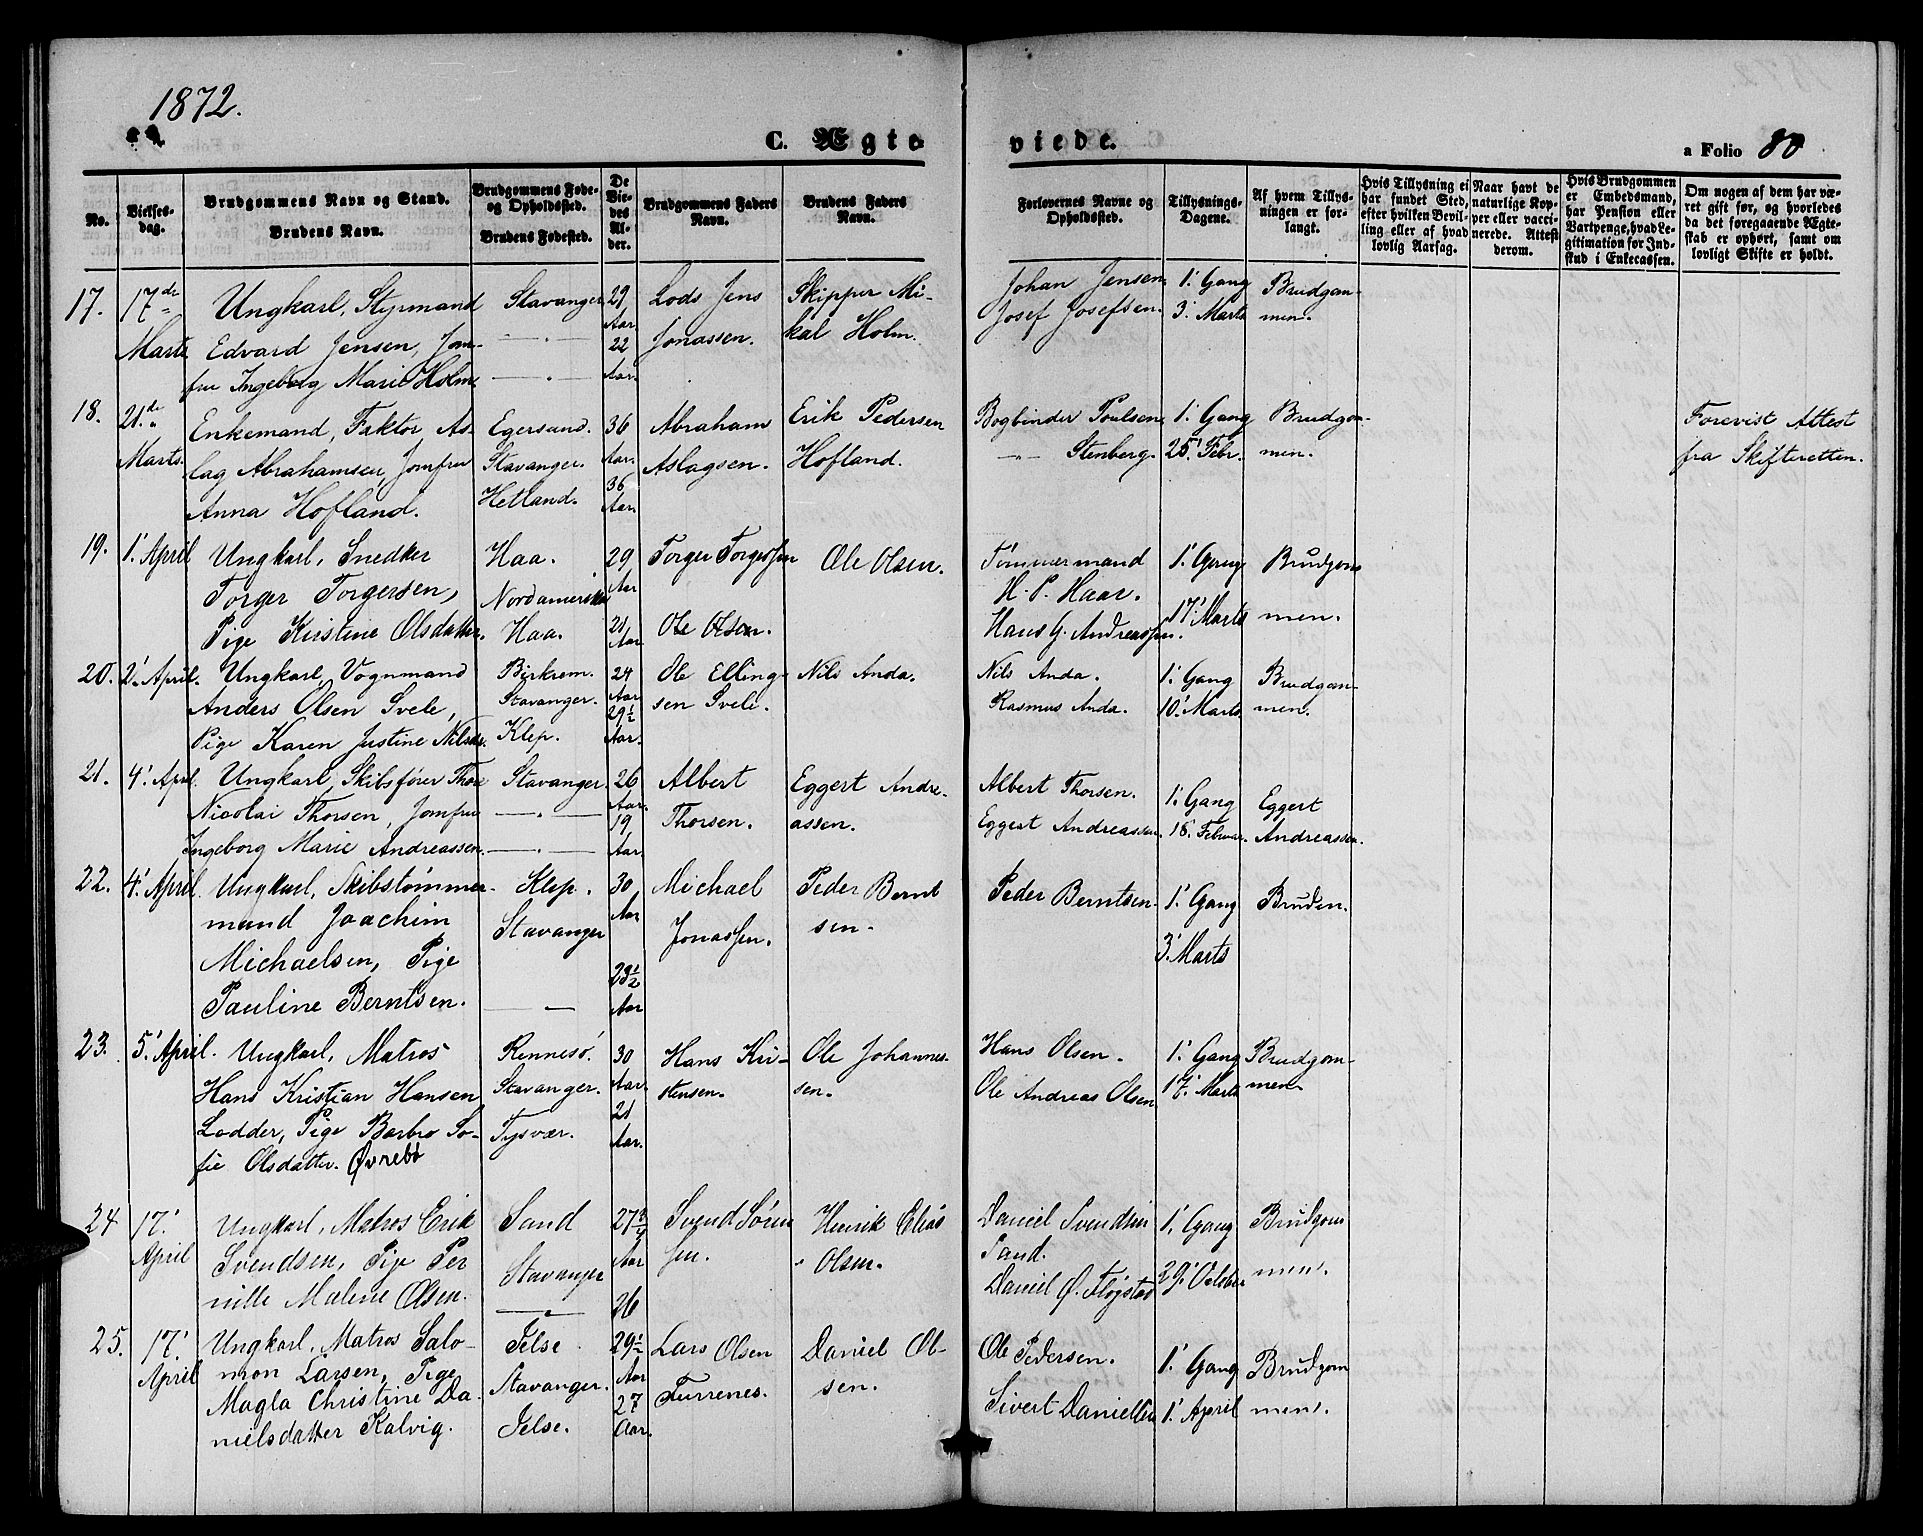 1872.
C. Ægte
viede.
a Folio 80
No.
Vielses-
dag.
Brudgommens Navn og Stand.
Brudens Navn.
Brudgommens Føde-
og Opholdssted.
Brudens Fødested.
De
Vie-
des
Al-
der.
Brudgommens Faders
Navn.
Brudens Faders
Navn.
Forlovernes Navne og
Opholdssted.
Tillysnings-
Dagene.
Af hvem Tillys-
ningen er for-
langt.
Hvis Tillysning ei
har fundet Sted,
efter hvilken Bevil-
ling eller af hvad
lovlig Aarsag.
Naar havt de
naturlige Kop-
per eller vacci-
nerede. Attest
derom.
Hvis Brudgommen
er Embedsmand,
har Pension eller
Vartpenge, hvad Le-
gitimation for Ind-
skud i Enkecassen.
Om nogen af dem har væ-
ret gift før, og hvorledes
da det foregaaende Ægte-
skab er ophørt, samt om
lovligt Skifte er holdt.
17.
17de
Marts
Ungkarl, Styrmand
Edvard Jensen, Jom-
fru Ingeborg Marie Holm.
Stavanger
— " —
— " —
29
Aar
22
Aar.
Lods Jens
Jonassen.
Skipper Mi-
kal Holm.
Johan Jensen
Josef Josefsen.
1' Gang
3' Marts
Brudgom-
men.
18.
21de
Marts.
Enkemand, Faktor As-
lag Abrahamsen, Jomfru
Anna Hofland.
Egersund.
Stavanger.
Hetland.
36
Aar.
36
Aar.
Abraham
Aslagsen.
Erik Pedersen
Hofland.
Bogbinder Poulsen
— " — Stenberg.
1' Gang
25' Febr.
Brudgom-
men.
Forevist Attest
fra Skifteretten.
19.
1' April
Ungkarl, Snedker
Torger Torgersen,
Pige Kirstine Olsdatter.
Haa.
Nordamerika
Haa.
29
Aar
21
Aar
Torger Torgersen
Ole Olsen.
Ole Olsen.
Tømmermand
H. P. Haar.
Hans G. Andreassen.
1' Gang
17' Marts
Brudgom
men.
20.
2' April.
Ungkarl, Vognmand
Anders Olsen Svele,
Pige Karen Justine Nilsdr.
Birkrem.
Stavanger.
Klep.
24
Aar
29½
Aar.
Ole Elling-
sen Svele.
Nils Anda.
Nils Anda.
Rasmus Anda.
1' Gang
10' Marts
Brudgom-
men.
21.
4' April.
Ungkarl, Skibsfører Thore
Nicolai Thorsen, Jomfru
Ingeborg Marie Andreassen.
Stavanger
— " —
— " —
26
Aar.
19
Aar.
Albert
Thorsen.
Eggert Andre-
assen.
Albert Thorsen.
Eggert Andreassen.
1' Gang
18' Februar.
Eggert
Andreassen.
22.
4' April.
Ungkarl, Skibstømmer-
mand Joachim
Michaelsen, Pige
Pauline Berntsen.
Klep.
Stavanger
— " —
30
Aar
23½
Aar
Michael
Jonassen.
Peder Bernt
sen.
Peder Berntsen.
1' Gang
3' Marts
Bruden.
23.
5' April.
Ungkarl, Matros
Hans Kristian Hansen
Lodder, Pige Barbro So-
fie Olsdatter. Øvrebø
Rennesø.
Stavanger.
Tysvær.
30
Aar.
21
Aar.
Hans Kri-
stensen.
Ole Johannes-
sen.
Hans Olsen.
Ole Andreas Olsen
1' Gang
17' Marts
Brudgom-
men.
24
17'
April
Ungkarl, Matros Erik
Svendsen, Pige Per
nille Malene Olsen.
Sand
Stavanger
— " —
27¾
Aar
26
Svend Søren
sen.
Henrik Elias
Olsen.
Daniel Svendsen
Sand.
Daniel Ø. Fløgstad
1' Gang
29' October
Brudgom
men.
25.
17'
April
Ungkarl, Matros Salo-
mon Larsen, Pige
Magla Christine Da-
nielsdatter Kalvig.
Jelse
Stavanger.
Jelse.
29½
Aar
27
Aar.
Lars Olsen
Furrenes.
Daniel Ol-
sen.
Ole Pedersen.
Sivert Danielsen
1' Gang
1' April
Brudgom
men.